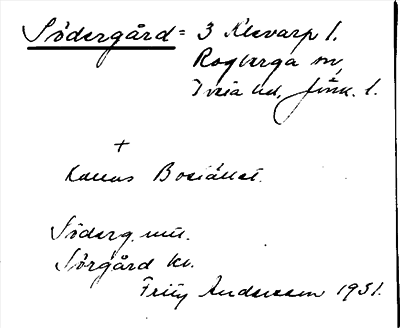 Södergård = 3 Klevarp 1.
Rogberga sn,
Tveta hd, Jönk. l.
+
Kallas Bostället.
Söderg. mil.
Sörgård kv.
Fritz Andersson 1931.